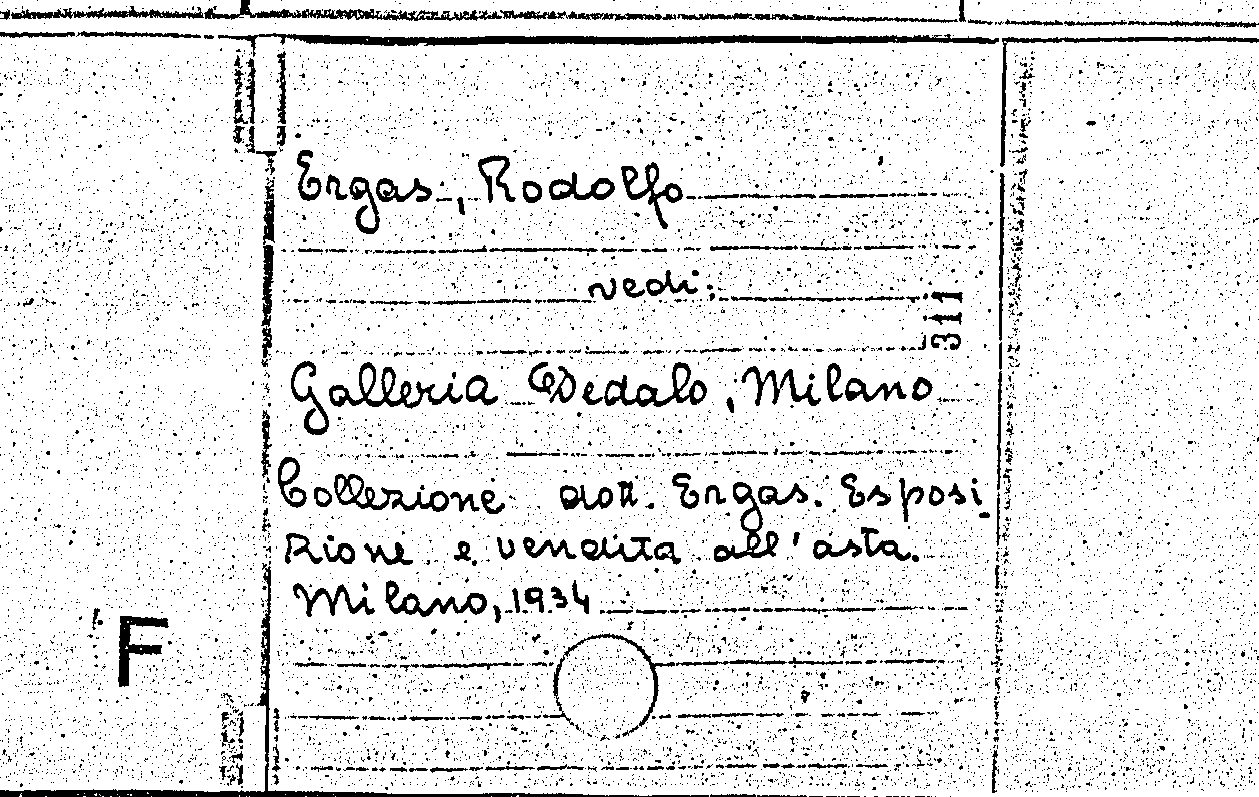 Ergas, Rodolfo
vedi:
311
Galleria Dedalo, Milano
Collezione dott. Ergas. Esposi_
zione e vendita all'asta.
Milano, 1934
F